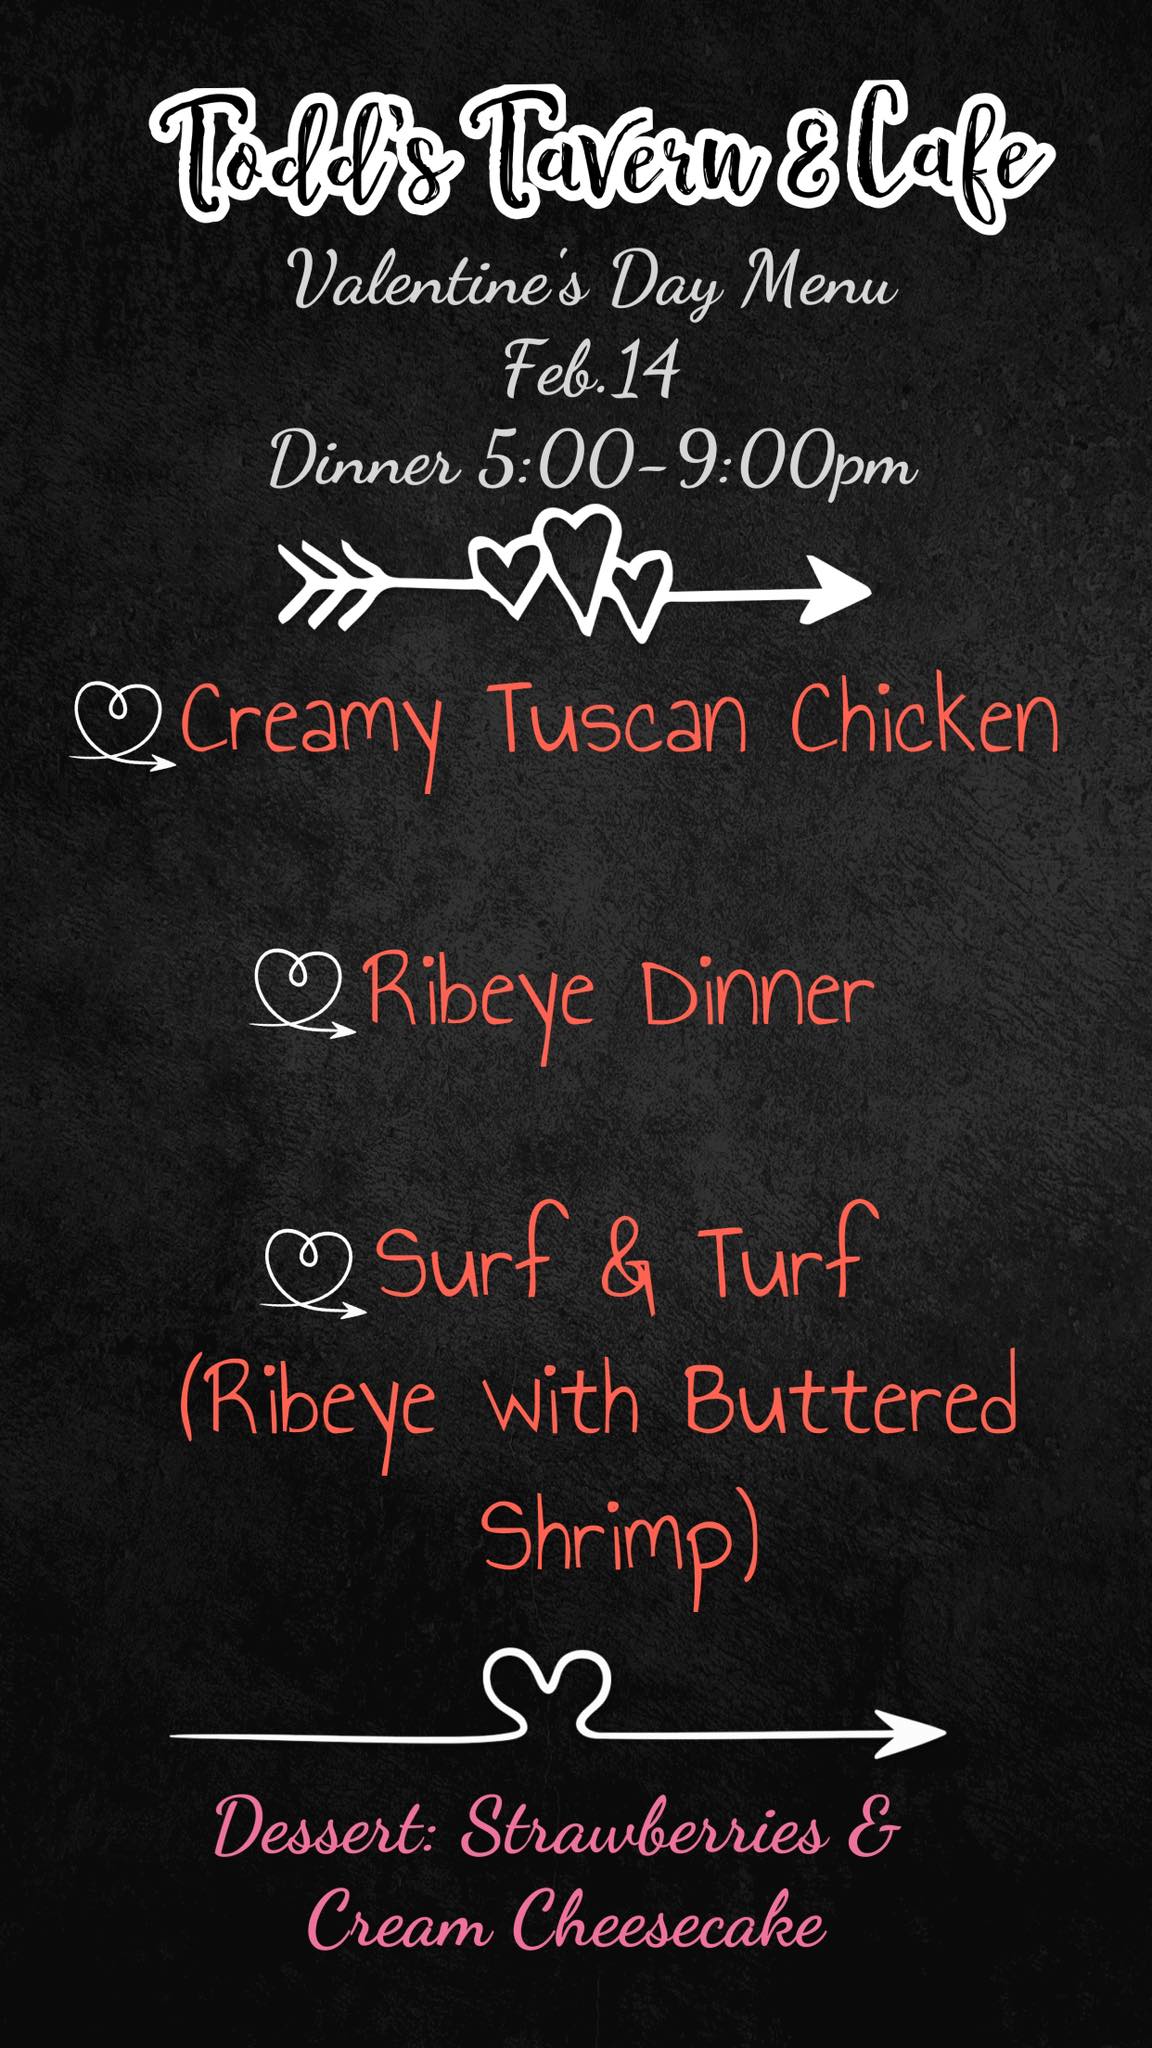 Todd's Tavern & Cafe
Valentine's Day Menu
Feb.14
Dinner 5:00-9:00pm
Creamy Tuscan Chicken
Ribeye Dinner
Surf & Turf
(Ribeye with Buttered
Shrimp)
Dessert: Strawberries &
Cream Cheesecake